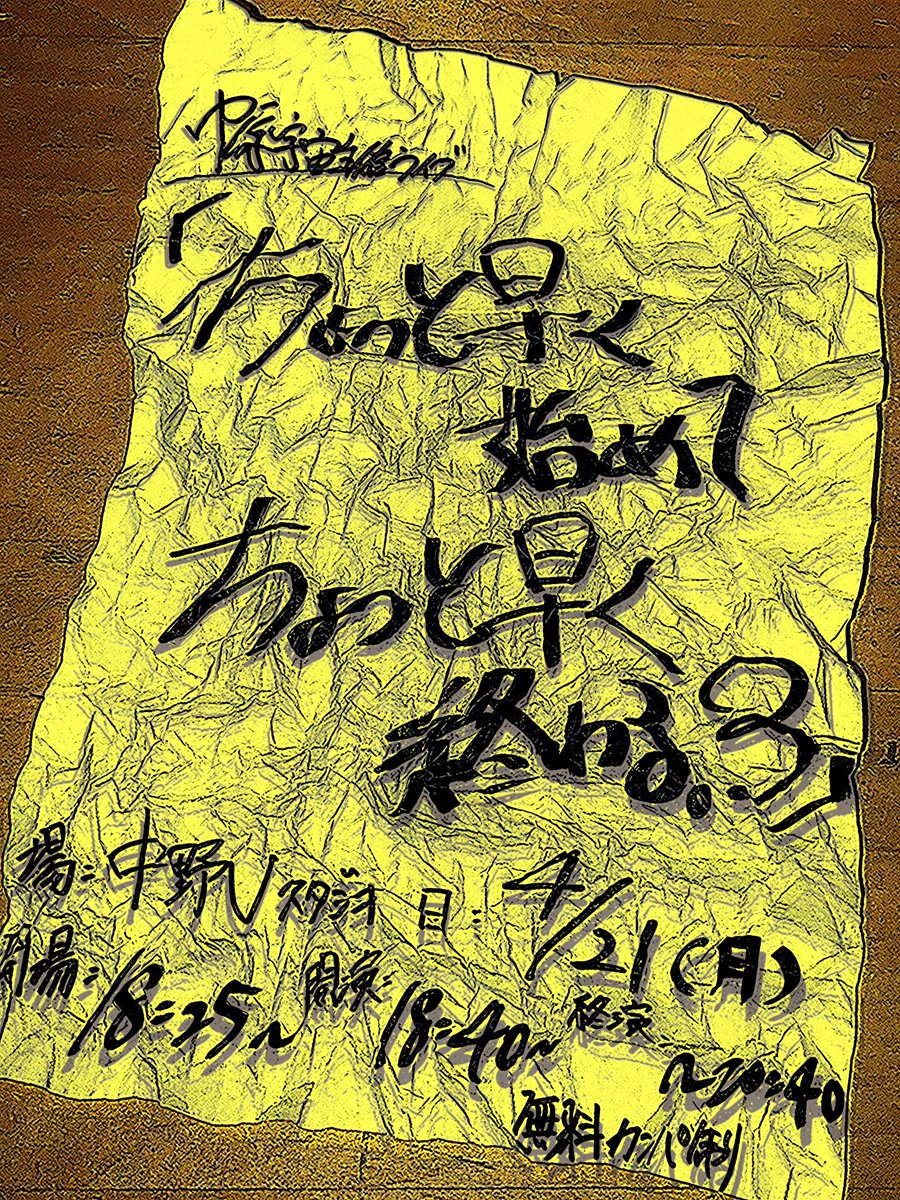 中原宇宙主催ライブ
「ちょっと早く
始めて
ちょっと早く
終わる。3」
場:中野Vスタジオ 日:4/21(月)
開場:18:25~ 開演:18:40~ 終演
~20:40
無料カンパ制